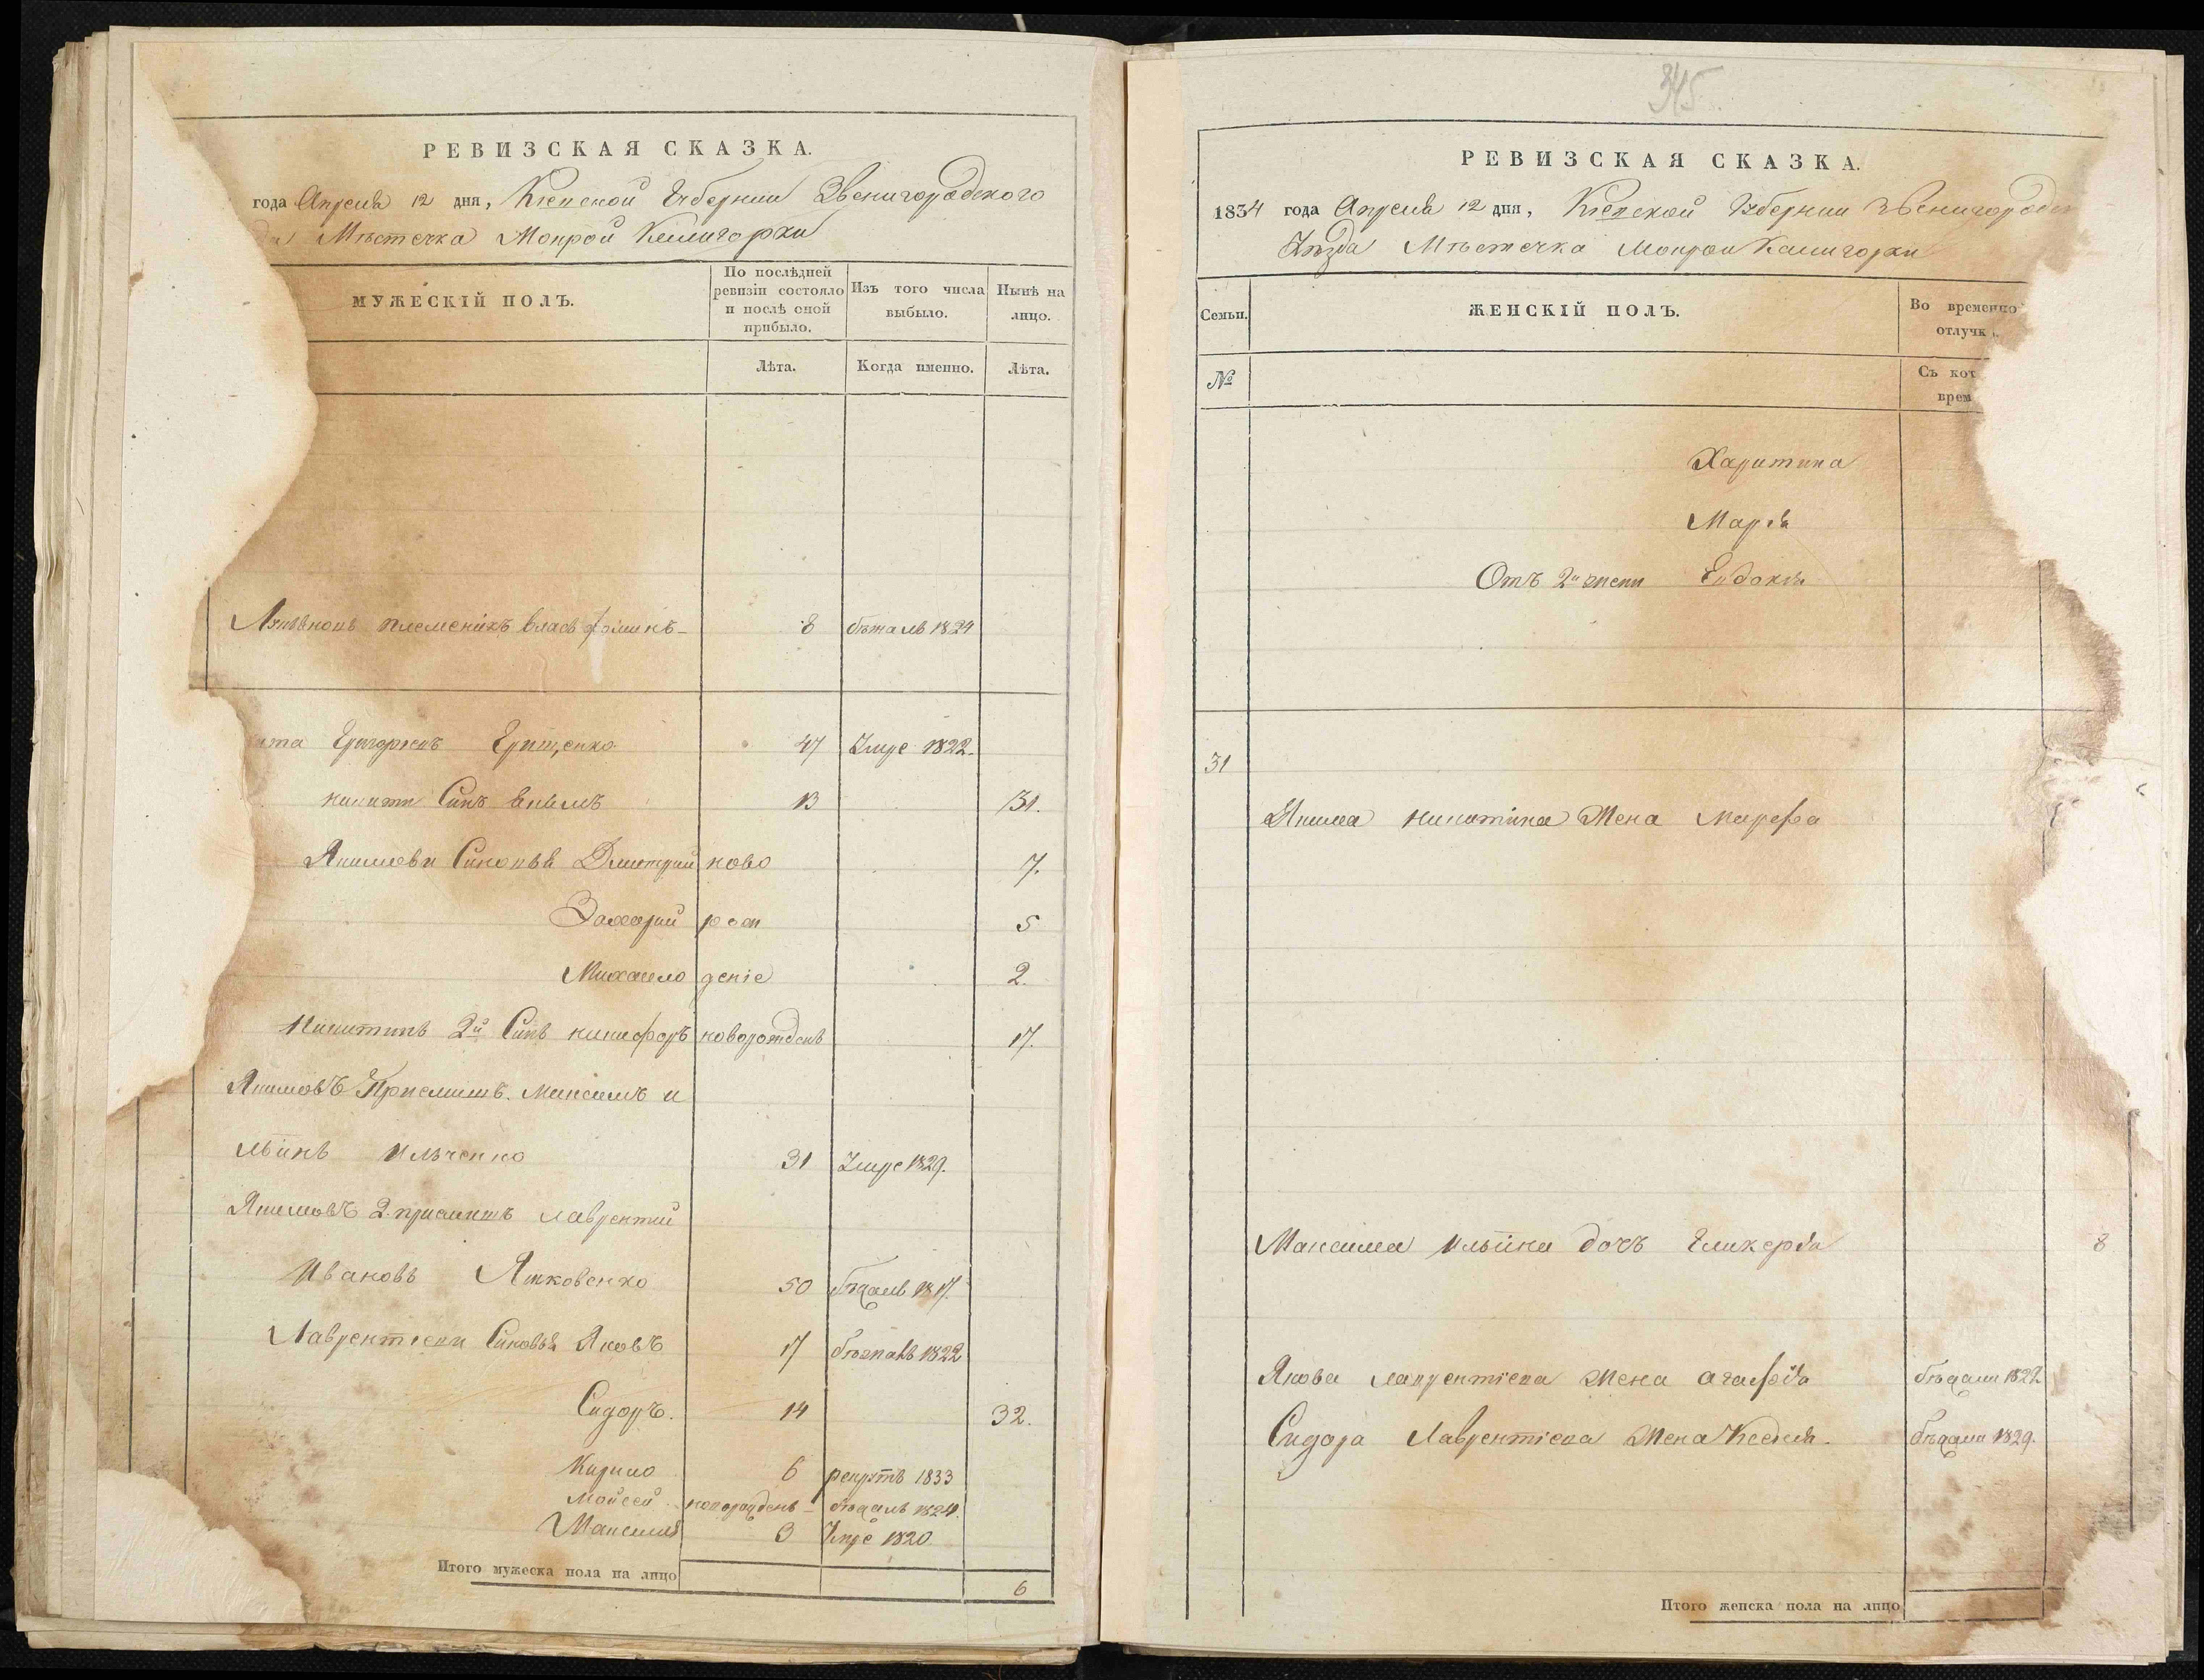 РЕВИЗСКАЯ СКАЗКА.
года Апреля 12 дня, Кіевской Губернии Звенигородского
Мѣстечка Мокрой Калигорки
МУЖЕСКІЙ ПОЛЪ.
По послѣдней ревизіи состояло и послѣ оной прибыло.
Изъ того числа выбыло.
Нынѣ на лицо.
Лѣта.
Когда именно.
Лѣта.
племеникъ Власъ 8 бѣжалъ 1824
Григорiевъ Грищенко 47 Умре 1822.
Никити Синъ Якимъ 13 31.
Якимови Синовья Дмитрий ново 7.
Захарий рож 5
Михайло дение 2.
Никитинъ 2й Синъ Никифоръ новорожденъ 17.
Якимовъ Приемишъ Максимъ И
льинъ Ильченко 31 Умре 1829.
Якимовъ 2 приемишъ Лаврентий
Ивановъ Яковенко 50 бѣжалъ 1817.
Лаврентиеви Синовья Яковъ 17 бѣжалъ 1822
Сидоръ. 14 32.
Кирило 6 рекрутъ 1833
Мойсей новорожденъ бѣжалъ 1824.
Максимъ 3 Умре 1820
Итого мужеска пола на лицо 6
345
РЕВИЗСКАЯ СКАЗКА.
1834 года Апреля 12 дня, Кіевской Губернии Звенигородск
Уѣзда Мѣстечка Мокрой Калигорки
Семьи.
ЖЕНСКІЙ ПОЛЪ.
Во временно
отлучк
№
Съ кот
врем
Харитина
Марья
Отъ 2й жени Евдокия
31
Якима Никитина Жена Марфа
Максима Ильина дочъ Гликерья 8
Якова Лаврентиева Жена Агафия бѣжали 1822
Сидора Лаврентиева Жена бѣжали 1829.
Итого женска пола на лицо